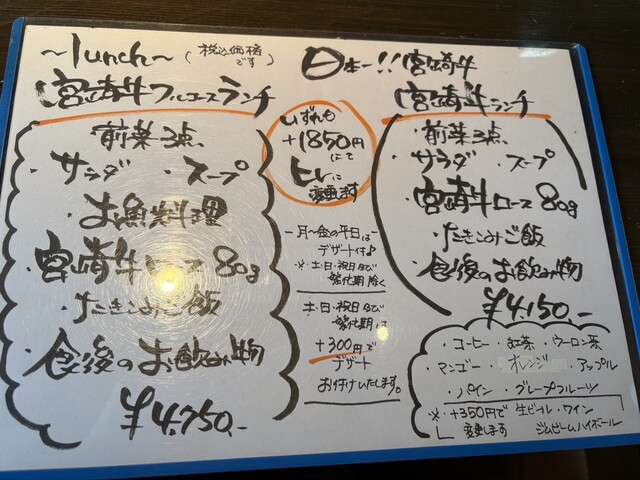 ~lunch~ (税込価格です)
宮崎牛フルコースランチ
前菜3点
・サラダ ・スープ
・お魚料理
・宮崎牛ロース80g
・たきこみご飯
・食後のお飲み物
¥4,750.-
いずれも
+1850円
にて
ヒレに
変更します
月〜金の平日は
デザート付♪
※土・日・祝日及び
繁忙期除く
土・日・祝日及び
繁忙期は
+300円で
デザート
お付けいたします。
日本一!!宮崎牛
宮崎牛ランチ
・前菜3点
・サラダ ・スープ
宮崎牛ロース80g
・たきこみご飯
・食後のお飲み物
¥4,150.-
・コーヒー ・紅茶 ・ウーロン茶
・マンゴー オレンジ ・アップル
・パイン ・グレープフルーツ
※+350円で 生ビール・ワイン
変更します ジムビームハイボール